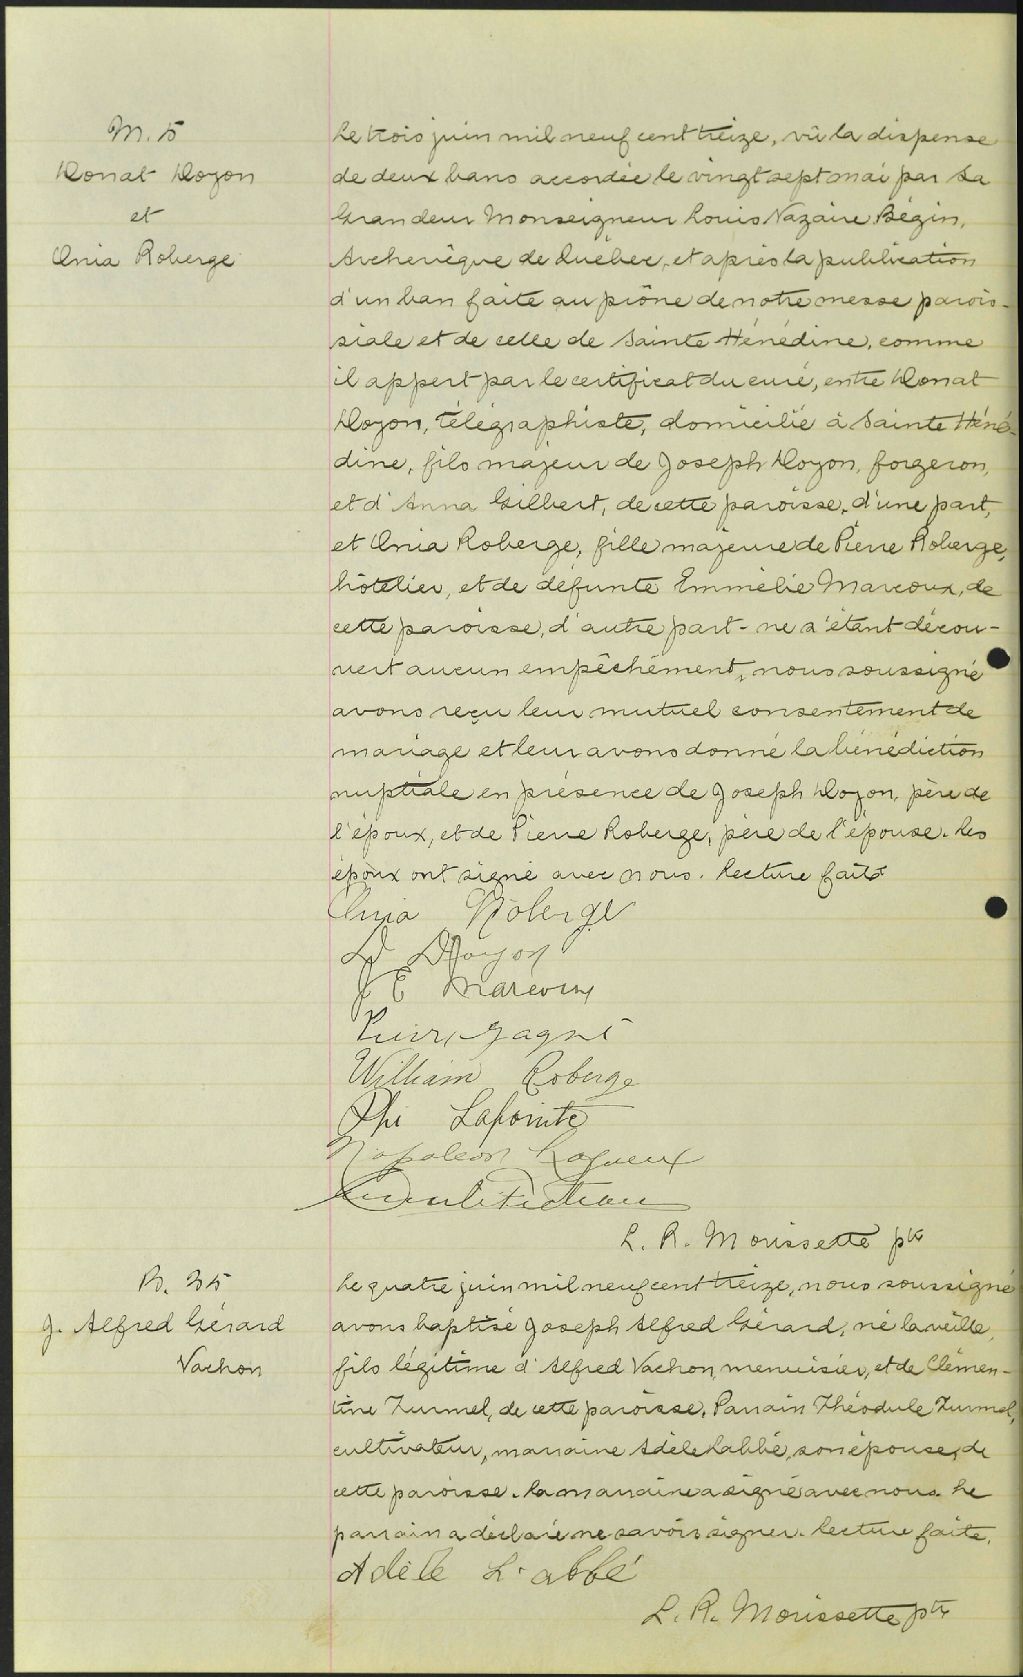 M. 5
Donat Doyon
et
Ania Roberge
Le trois juin mil neuf cent treize, vû la dispense
de deux bans accordée le vingt sept mai par Sa
Grandeur Monseigneur Louis Nazaire Bégin,
Archevêque de Québec, et après la publication
d'un ban faite au prône de notre messe parois-
siale et de celle de Sainte Hénédine, comme
il appert par le certificat du curé, entre Donat
Doyon, télégraphiste, domicilié à Sainte Héné-
dine, fils majeur de Joseph Doyon, forgeron,
et d'Anna Gilbert, de cette paroisse, d'une part,
et Ania Roberge, fille majeure de Pierre Roberge,
hôtelier, et de défunte Emmélie Marcoux, de
cette paroisse, d'autre part - ne s'étant décou-
vert aucun empêchement, nous soussigné
avons reçu leur mutuel consentement de
mariage et leur avons donné la bénédiction
nuptiale en présence de Joseph Doyon, père de
l'époux, et de Pierre Roberge, père de l'épouse. Les
époux ont signé avec nous. Lecture faite
Ania Roberge
D Doyon
J E Marcoux
Pierre Gagné
William Roberge
Phi Lapointe
Napoleon Lagueux
L. R. Morissette ptre
B. 35
J. Alfred Gérard
Vachon
Le quatre juin mil neuf cent treize, nous soussigné
avons baptisé Joseph Alfred Gérard, né la veille,
fils légitime d'Alfred Vachon, menuisier, et de Clémen-
tine Turmel, de cette paroisse. Parrain Théodule Turmel,
cultivateur, marraine Adèle Labbé, son épouse, de
cette paroisse. La marraine a signé avec nous. Le
parrain a déclaré ne savoir signer. Lecture faite.
Adèle L'abbé
L. R. Morissette ptre